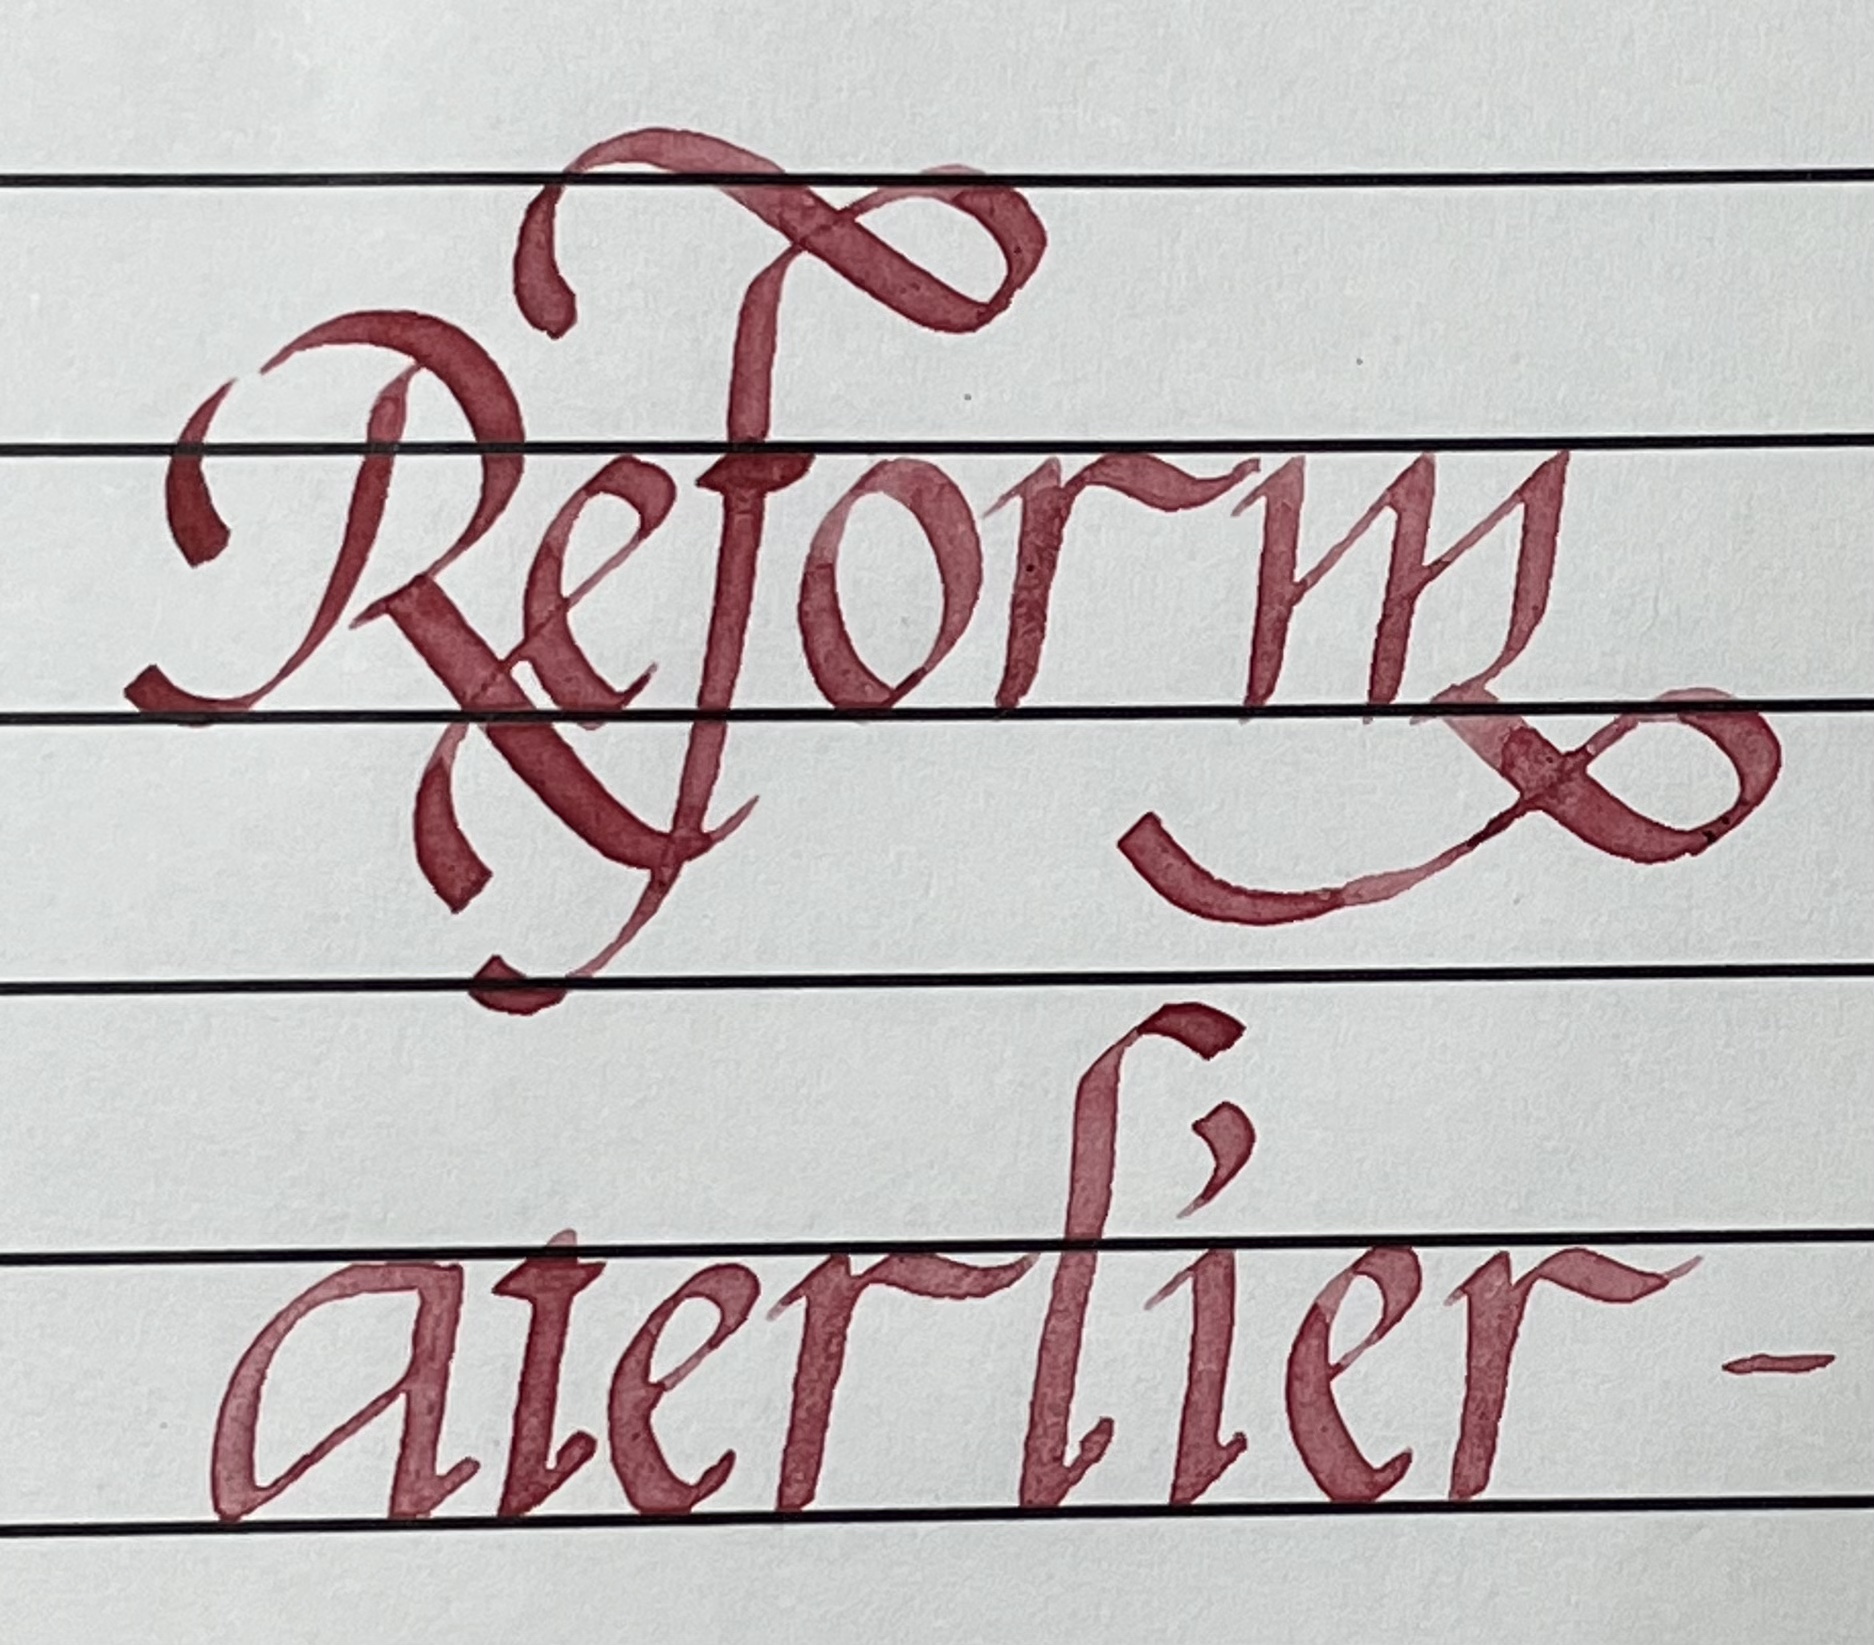 Reform
aterlier-